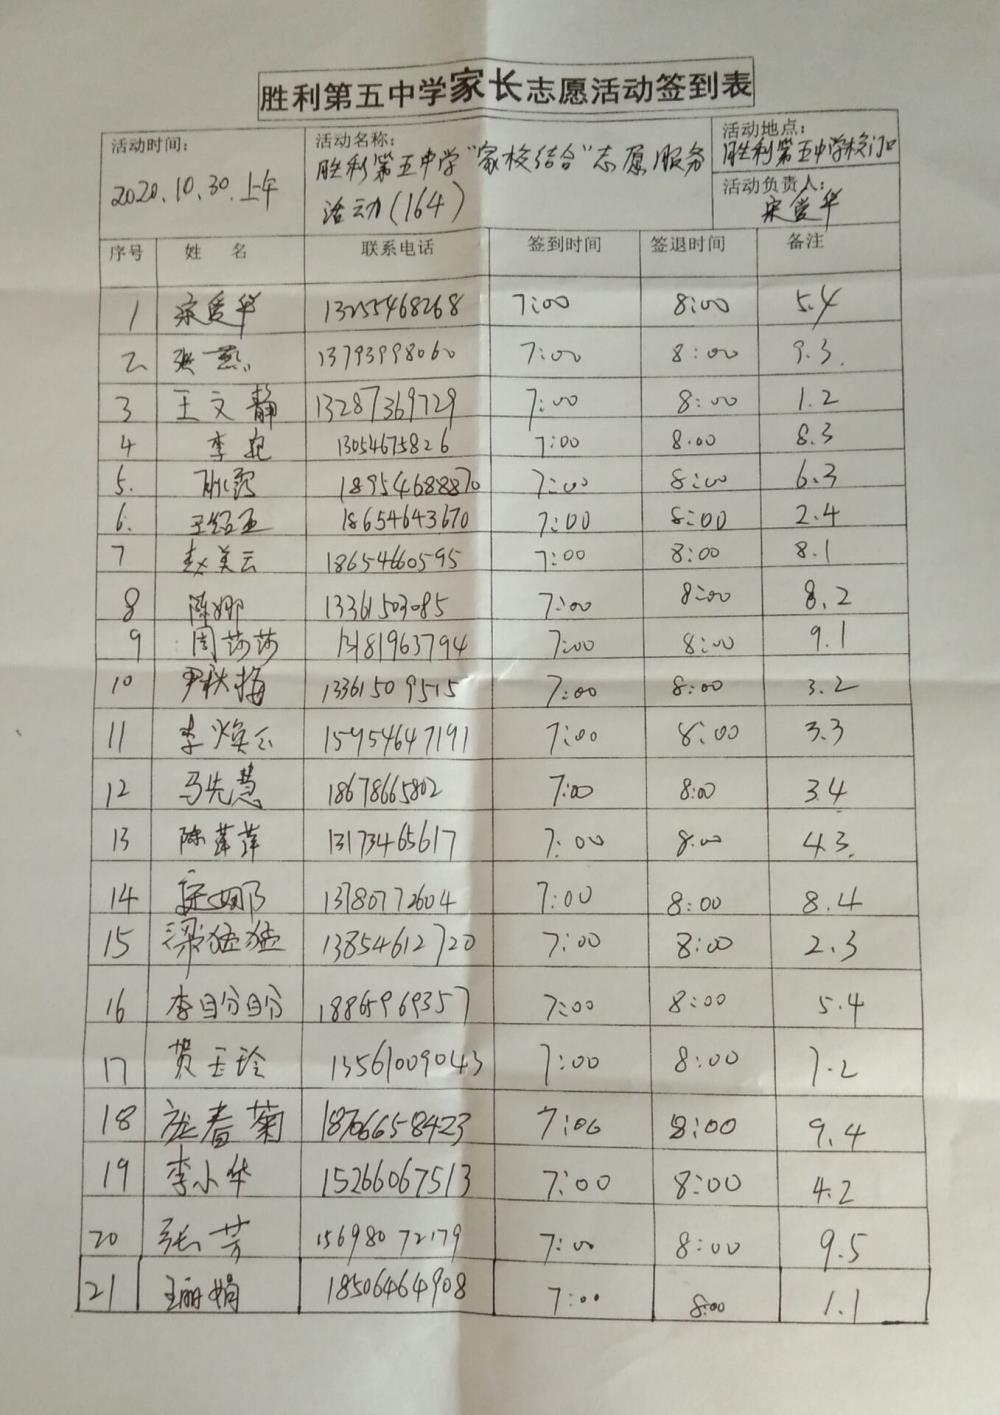 胜利第五中学家长志愿活动签到表
活动时间: 2020.10.30.上午
活动名称: 胜利第五中学"家校结合"志愿服务活动(164)
活动地点: 胜利第五中学校门口
活动负责人: 宋爱华
序号 姓名 联系电话 签到时间 签退时间 备注
1 宋爱华 13255468268 7:00 8:00 5.4
2 张燕 13793998060 7:00 8:00 9.3.
3 王文静 13287369729 7:00 8:00 1.2
4 李 13054675826 7:00 8:00 8.3
5. 18954688870 7:00 8:00 6.3
6. 王红玉 18654643670 7:00 8:00 2.4
7 赵美云 18654660595 7:00 8:00 8.1
8 陈娜 13361503085 7:00 8:00 8.2
9 周莎莎 13181963794 7:00 8:00 9.1
10 尹秋梅 13361509515 7:00 8:00 3.2
11 李焕 15954647191 7:00 8:00 3.3
12 马先慧 18678665802 7:00 8:00 3.4
13 陈萍萍 13173465617 7:00 8:00 4.3.
14 娜 13780772604 7:00 8:00 8.4
15 梁猛猛 13854612720 7:00 8:00 2.3
16 李盼盼 18865969357 7:00 8:00 5.4
17 贾玉玲 13561009043 7:00 8:00 7.2
18 庞春菊 18766658423 7:00 8:00 9.4
19 李小华 15266067513 7:00 8:00 4.2
20 张芳 15698072179 7:00 8:00 9.5
21 王丽娟 18506464908 7:00 8:00 1.1